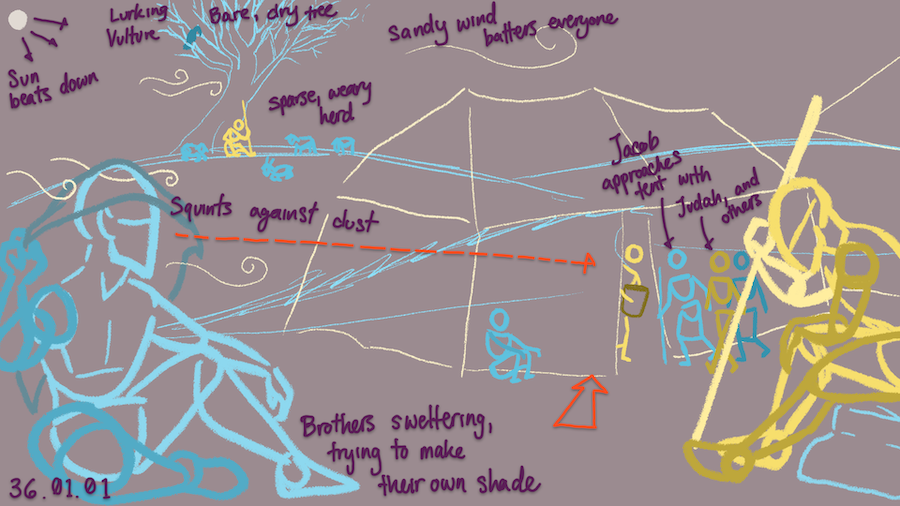 Sun
beats down
Lurking
Vulture
Bare, dry tree
Sandy wind
batters everyone
sparse, weary
herd
Jacob
approaches
tent with
Judah, and
others
Squints against dust
Brothers sweltering,
trying to make
their own shade
36.01.01